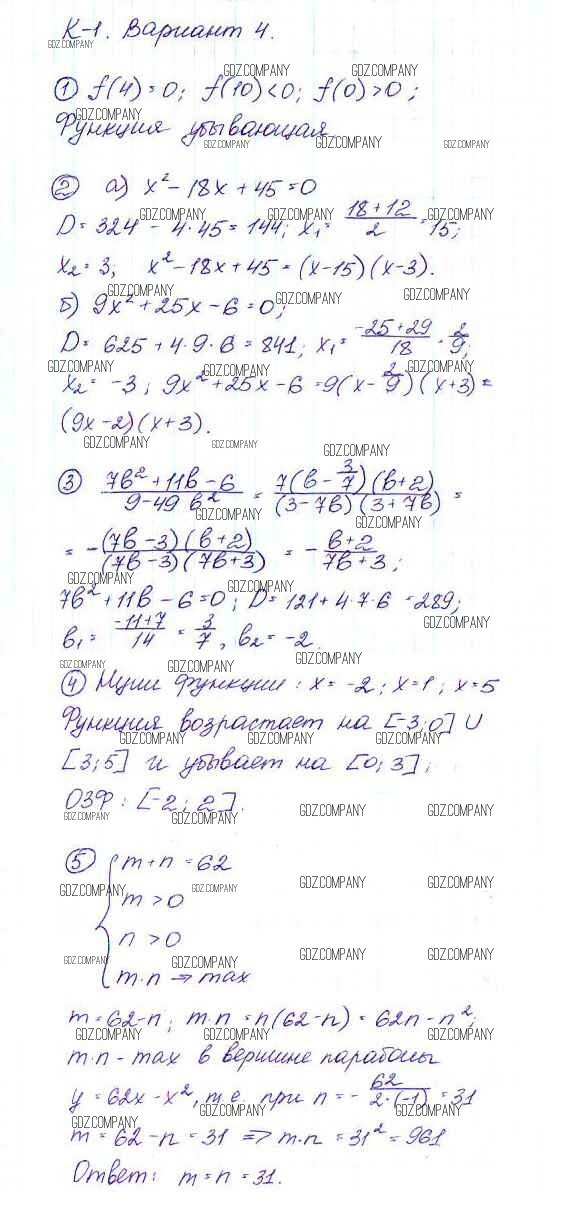 К-1. Вариант 4.
GDZ.COMPANY
GDZ.COMPANY GDZ.COMPANY
① f(4)=0; f(10)<0; f(0)>0;
GDZ.COMPANY
Функция убывающая
GDZ.COMPANY GDZ.COMPANY GDZ.COMPANY
② а) x² - 18x + 45 = 0
GDZ.COMPANY GDZ.COMPANY GDZ.COMPANY
D = 324 - 4·45 = 144; x₁ = (18+12)/2 = 15;
x₂ = 3; x² - 18x + 45 = (x-15)(x-3).
GDZ.COMPANY GDZ.COMPANY GDZ.COMPANY
б) 9x² + 25x - 6 = 0;
D = 625 + 4·9·6 = 841; x₁ = (-25+29)/18 = 2/9;
GDZ.COMPANY GDZ.COMPANY GDZ.COMPANY
x₂ = -3; 9x² + 25x - 6 = 9(x - 2/9)(x+3) =
(9x-2)(x+3).
GDZ.COMPANY GDZ.COMPANY GDZ.COMPANY
③ (7b² + 11b - 6)/(9 - 49b²) = 7(b - 3/7)(b+2)/(3-7b)(3+7b) =
GDZ.COMPANY GDZ.COMPANY
= - (7b-3)(b+2)/(7b-3)(7b+3) = - (b+2)/(7b+3);
GDZ.COMPANY GDZ.COMPANY
7b² + 11b - 6 = 0; D = 121 + 4·7·6 = 289;
GDZ.COMPANY
b₁ = (-11+7)/14 = 3/7, b₂ = -2.
GDZ.COMPANY GDZ.COMPANY GDZ.COMPANY
④ Нули функции: x = -2; x = 1; x = 5
Функция возрастает на [-3; 0] U
GDZ.COMPANY GDZ.COMPANY GDZ.COMPANY
[3; 5] и убывает на [0; 3];
ОЗФ: [-2; 2].
GDZ.COMPANY GDZ.COMPANY GDZ.COMPANY GDZ.COMPANY
⑤ { m + n = 62
GDZ.COMPANY GDZ.COMPANY GDZ.COMPANY GDZ.COMPANY
m > 0
n > 0
GDZ.COMPANY GDZ.COMPANY GDZ.COMPANY GDZ.COMPANY
m·n → max
m = 62-n; m·n = n(62-n) = 62n - n²;
GDZ.COMPANY GDZ.COMPANY GDZ.COMPANY
m·n - max в вершине параболы
y = 62x - x², т.е. при n = - 62/(2·(-1)) = 31
GDZ.COMPANY GDZ.COMPANY GDZ.COMPANY
m = 62 - n = 31 => m·n = 31² = 961
Ответ: m = n = 31.